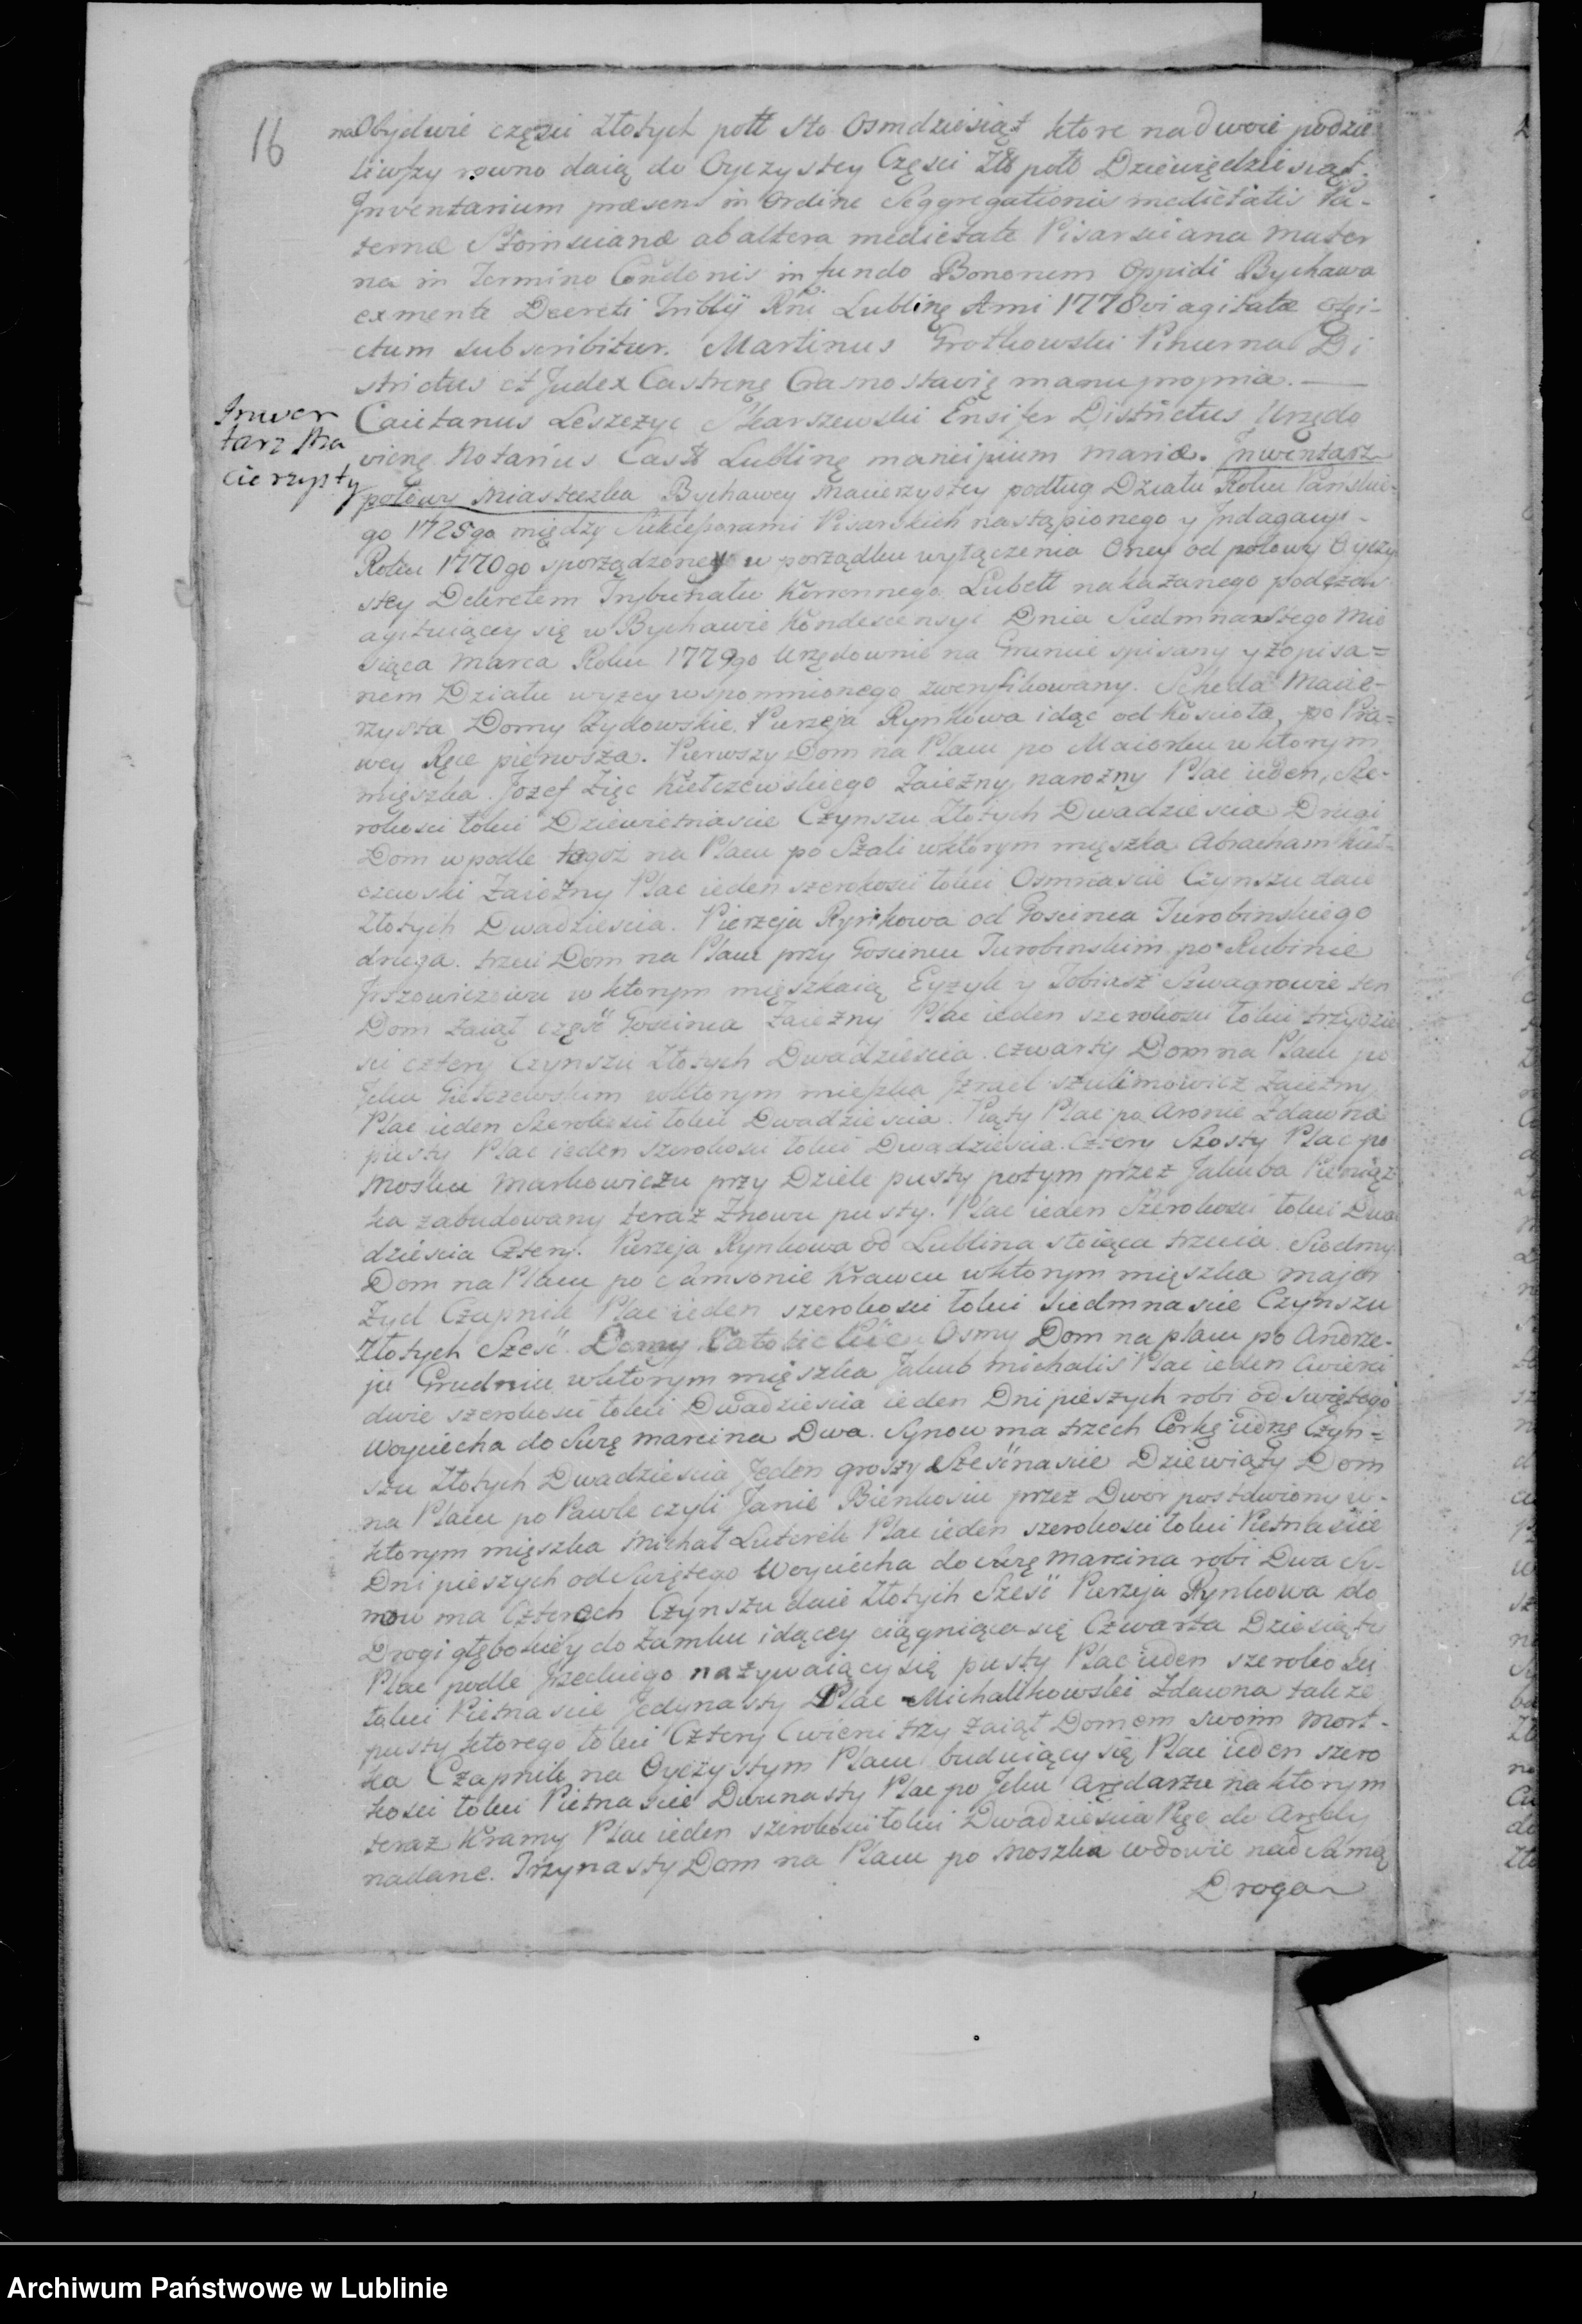 16
na Obydwie części Złotych poltt Sto Osmdziesiąt ktore na dwoie podzie
liwszy rowno daią do Oyczystey Części Złł polt Dziewięcdziesiąt.
Inventarium præsens in Ordine Seggregationis medietatis Pa-
ternæ Słomsciana ab altera medietate Pisarsciana Mater
na in Termino Condescensionis in fundo Bonorum Oppidi Bychawa
ex mente Decreti Triblij Rñi Lublinę Anni 1778vi agitatæ confi-
ctum subscribitur. Martinus Grothowski Pincerna Di
strictus et Judex Castrenę Crasnostavię manu propria.
Inwen
tarz Ma
cierzysty
Caietanus Leszczyc Skarszewski Ensifer Districtus Urzędo
vienę Notarius Castr Lublinę manu propria. Inwentarz
połowy Miasteczka Bychawy Macierzystey podług Działu Roku Pańskie-
go 1725go między Sukcessorami Pisarskich nastąpionego y Indagacyi
Roku 1770go sporządzoney w porządku wyłączenia Oney od połowy Oyczy
stey Dekretem Trybunału Koronnego Lubelt nakazanego podczas
agituiącey się w Bychawie Kondescensyi Dnia Siedmnastego Mie
siąca Marca Roku 1779go Urzędownie na Gruncie spisany y z opisa=
niem Działu wyzey wspomnionego zweryfikowany. Scheda Macie-
rzysta Domy Zydowskie. Pierzeja Rynkowa idąc od Kościoła, po Pra=
wey Ręce pierwsza. Pierwszy Dom na Placu po Maiorku w ktorym
mięszka Jozef Zięc Kiełczewskiego Zaiezny narozny Plac ieden, Sze-
rokosci łokci Dziewietnascie Czynszu Złotych Dwadziescia Drugi
Dom wpodle tegoz na Placu po Szali w ktorym mięszka Abracham Kieł-
czewski Zaiezny Plac ieden szerokosci łokci Osmnascie Czynszu daie
Złotych Dwadziescia. Pierzeja Rynkowa od Goscinca Turobinskiego
druga. trzeci Dom na Placu przy Goscincu Turobinskim po Rubinie
Jrszowiczowu w ktorym mięszkaią Eyzyk y Tobiasz Szwagrowie ten
Dom zaiął część Goscinca Zaiezny Plac ieden szerokosci łokci trzydzie
sci cztery Czynszu Złotych Dwadziescia. czwarty Dom na Placu po
Jcku Giełczewskim w ktorym mieszka Jzrael Szulimowicz Zaiezny
Plac ieden Szerokosci łokci Dwadziescia. Piąty Plac po Aronie Zdawna
pusty Plac ieden szerokosci łokci Dwadziescia Cztery Szosty Plac po
Mosku Markowiczu przy Dziele pusty potym przez Jakuba Pieniąz
ka zabudowany teraz znowu pusty. Plac ieden Szerokosci łokci Dwa
dziescia Cztery. Pierzeja Rynkowa od Lublina stoiąca trzecia. Siodmy
Dom na Placu po Samsonie Krawcu w ktorym mięszka Major
Zyd Czapnik Plac ieden szerokosci łokci Siedmnascie Czynszu
Złotych Szesć. Domy Catolickie. Osmy Dom na placu po Andrze-
ju Grudniu w ktorym mięszka Jakub Michalis Plac ieden Cwierci
dwie szerokosci łokci Dwadziescia ieden Dni pieszych robi od Swiętego
Woyciecha do Swię Marcina Dwa. Synow ma trzech Corkę iednę Czyn=
szu Złotych Dwadziescia Jeden groszy Szesnascie Dziewiąty Dom
na Placu po Pawle czyli Janie Bienkosiu przez Dwor postawiony w
ktorym mięszka Michał Luterek Plac ieden szerokosci łokci Pietnascie
Dni pieszych od Swiętego Woyciecha do Swię Marcina robi Dwa Sy-
now ma Czterech Czynszu daie Złotych Szesć Pierzeja Rynkowa do
Drogi głębokiey do Zamku idącey ciągniąca się Czwarta Dziesiąty
Plac podle Jzeckiego nazywaiący się pusty Plac ieden szerokosci
łokci Pietnascie Jedynasty Plac Michalikowski Zdawna takze
pusty ktorego łokci Cztery Cwierci trzy zaiął Domem swoim Mort-
ka Czapnik na Oyczystym Placu buduiący się Plac ieden szero
kosci łokci Pietnascie Dwunasty Plac po Jcku Arędarzu na ktorym
teraz Kramy Plac ieden szerokosci łokci Dwadziescia Pięc do Arędy
nadane. Trzynasty Dom na Placu po Moszku wdowie nad samą
Drogą
Archiwum Państwowe w Lublinie